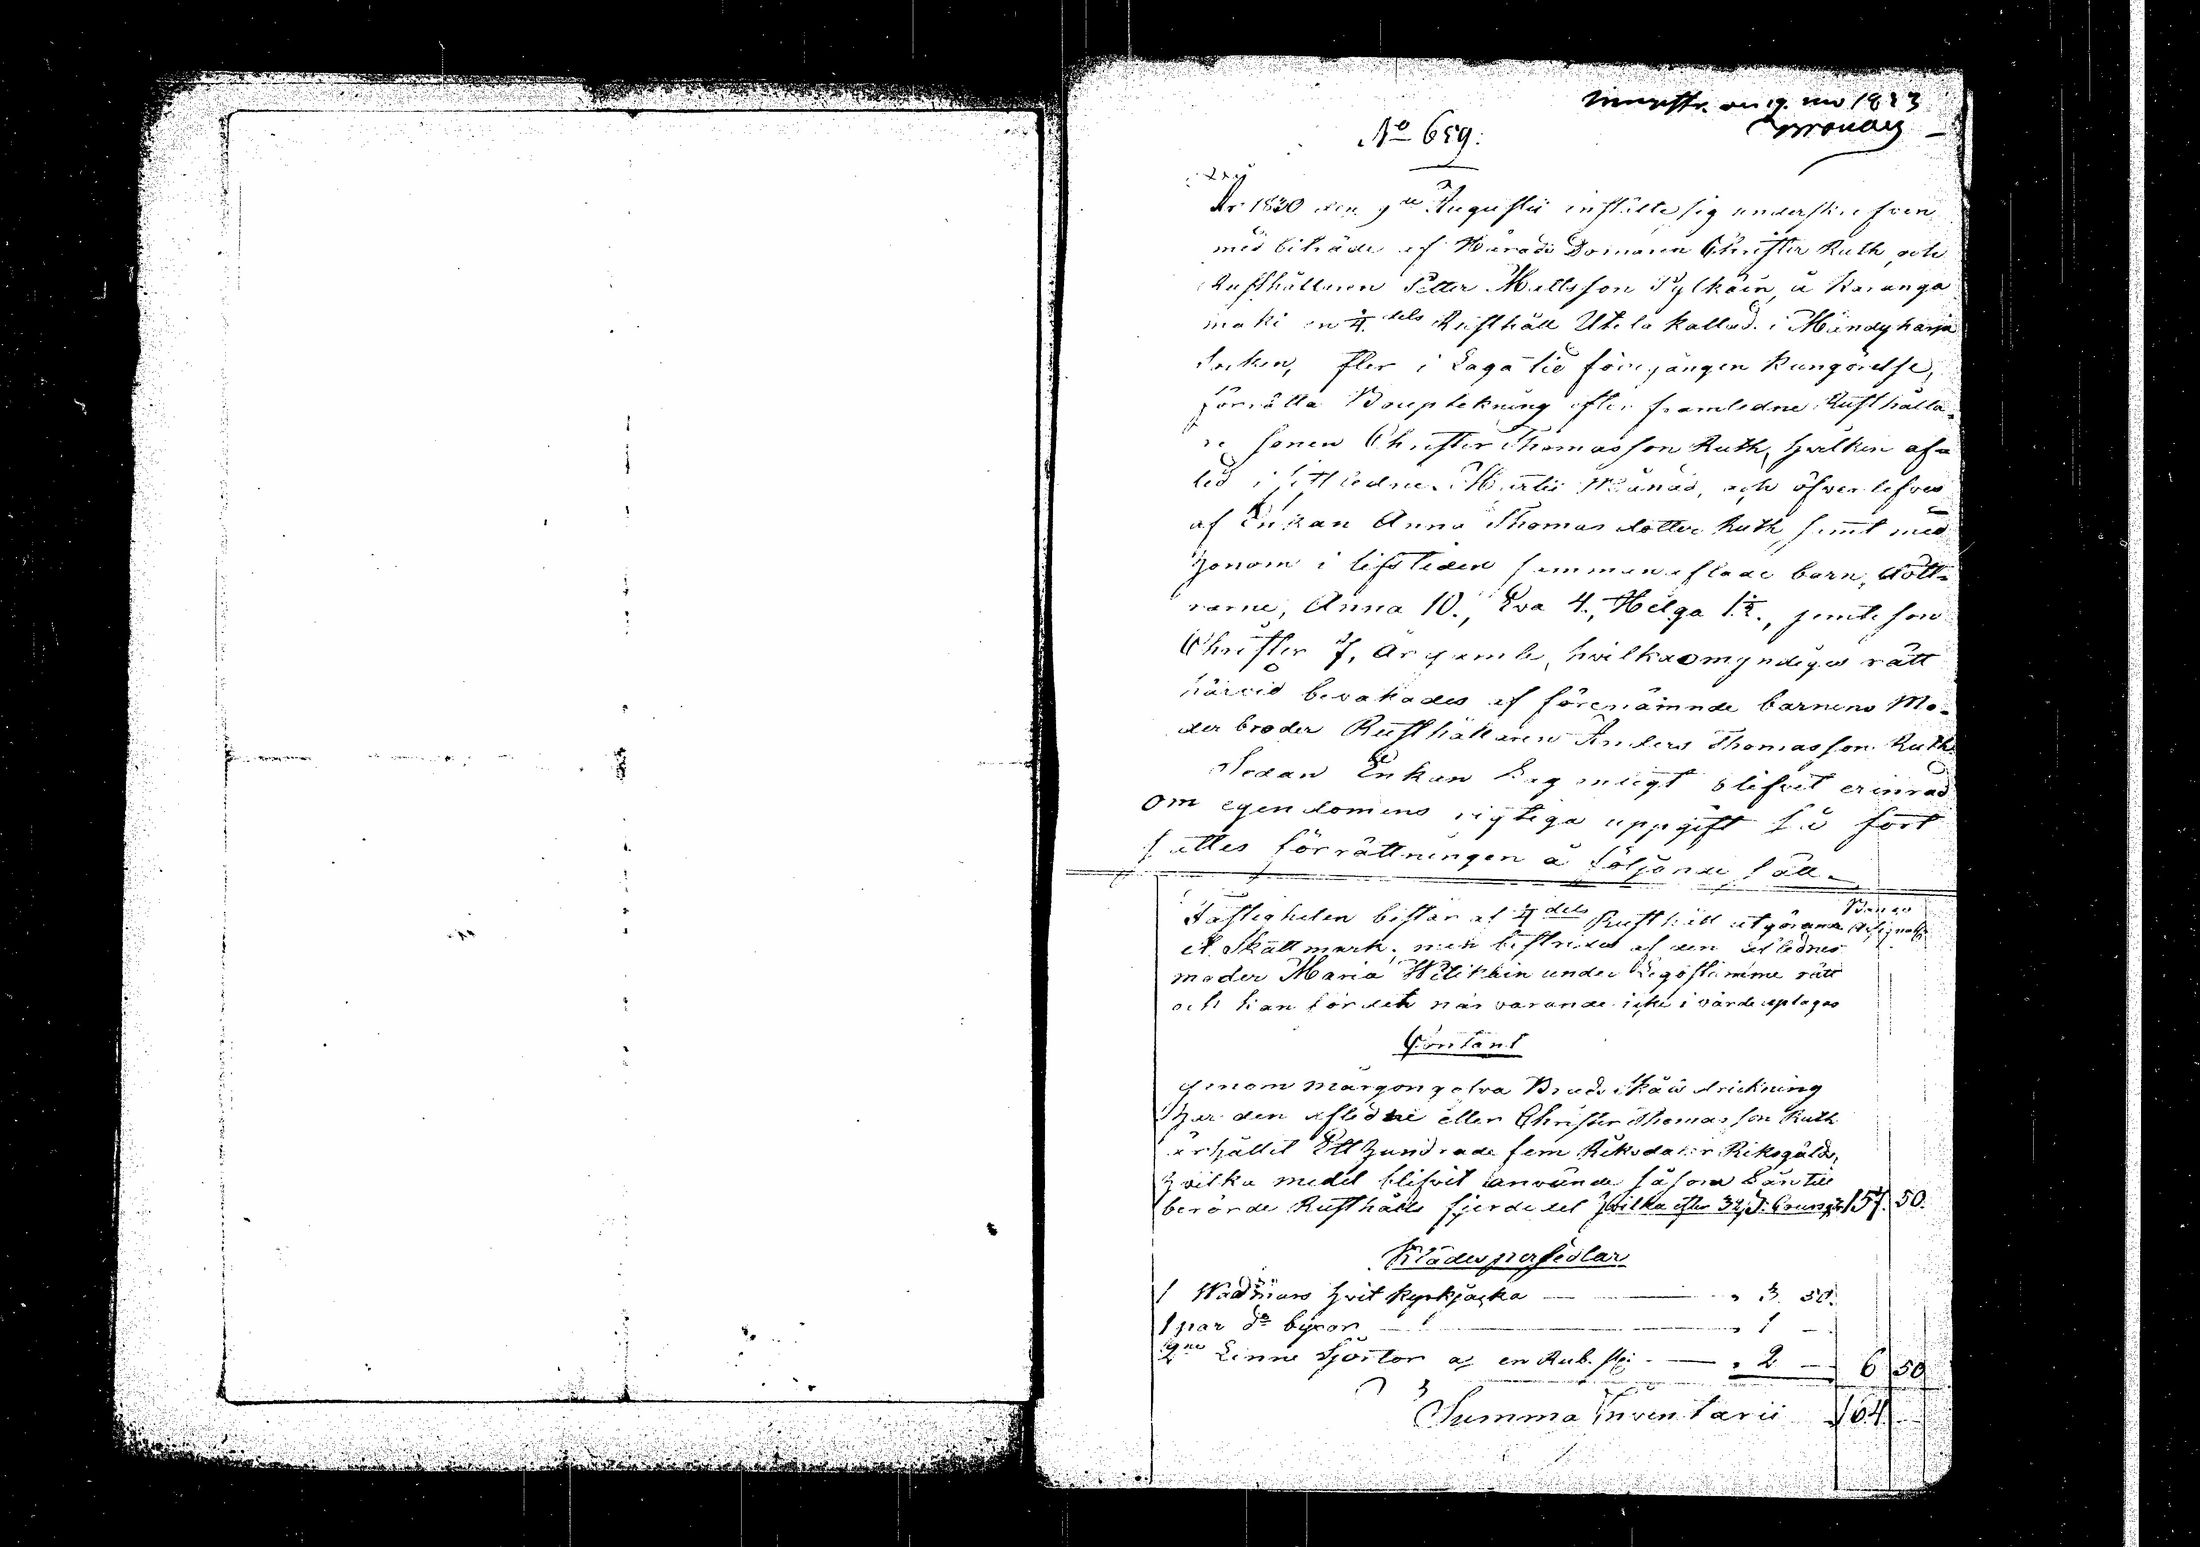 den 19. 1833
No 659.
År 1830 den 9de Augustii instälte sig underskrefven
med biträde af Härads Domaren Christer Ruth, och
Rusthållaren Petter Mattsson Pylkäin, å Karanga
mäki en 1/4 dels Rusthåll Utola kallad i Mändyharju
Socken, efter i Laga tid föregången kungörelse,
förrätta Bouptekning efter framledne Rusthålla-
re sonen Christer Thomasson Ruth, hvilken af-
led i sittledne Martii Månad, och öfverlefves
af Enkan Anna Thomas dotter Ruth, samt med
honom i lifstiden sammanaflade barn, dött-
rarne, Anna 10., Eva 4., Helga 1 1/2., jemte son
Christer 7, år gamle, hvilkas omyndiges rätt
härvid bevakades af förenämnde barnens Mo-
der broder Rusthållaren Anders Thomasson Ruth
Sedan Enkan Lagenligt blifvit erinrad
om egendomens rigtiga uppgift så fort
sattes förrättningen å följande sätt.
Fastigheten består af 1/4 dels Rusthåll utgörande Banco Assignat:
et Skattmark, men besittes af den aflednes
moder Maria Wilikain under Legostämme rätt
och kan för det när varande icke i värde uptagas
Contant
genom märgongofva Bruds Skåls drickning
har den afledne eller Christer Thomasson Ruth
erhållit Ett hundrade fem Riksdaler Riksgälds,
hvilka medel blifvit använde såsom Lån till
berörde Rusthålls fjerdedel hvilka efter 157. 50.
Klädespersedlar
1 Wadmars hvit kyrkjacka — " 3. 50.
1 par do byxor — " 1 —
2ne Linne Sjortor a/ en Rub. st: — " 2 — 6 50
Summa Inventarii 164 —